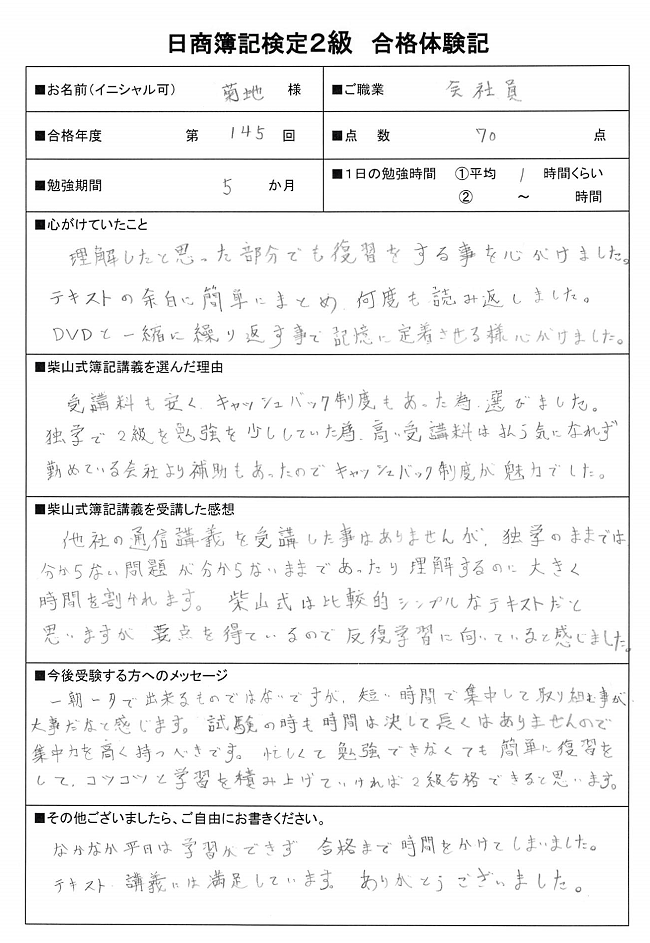 日商簿記検定2級 合格体験記
■お名前(イニシャル可) 菊地 様 ■ご職業 会社員
■合格年度 第 145 回 ■点 数 70 点
■勉強期間 5 か月 ■1日の勉強時間 ①平均 1 時間くらい
② ～ 時間
■心がけていたこと
理解したと思った部分でも復習をする事を心がけました。
テキストの余白に簡単にまとめ、何度も読み返しました。
DVDと一緒に繰り返す事で記憶に定着させる様心がけました。
■柴山式簿記講義を選んだ理由
受講料も安く、キャッシュバック制度もあった為、選びました。
独学で2級を勉強を少ししていた為、高い受講料は払う気になれず
勤めている会社より補助もあったのでキャッシュバック制度が魅力でした。
■柴山式簿記講義を受講した感想
他社の通信講義を受講した事はありませんが、独学のままでは
分からない問題が分からないままであったり理解するのに大きく
時間を割かれます。柴山式は比較的シンプルなテキストだと
思いますが要点を得ているので反復学習に向いていると感じました。
■今後受験する方へのメッセージ
一朝一夕で出来るものではないですが、短い時間で集中して取り組む事が
大事だなと感じます。試験の時も時間は決して長くはありませんので
集中力を高く持つべきです。忙しくて勉強できなくても簡単に復習を
して、コツコツと学習を積み上げていければ2級合格できると思います。
■その他ございましたら、ご自由にお書きください。
なかなか平日は学習ができず 合格まで時間をかけてしまいました。
テキスト、講義には満足しています。ありがとうございました。